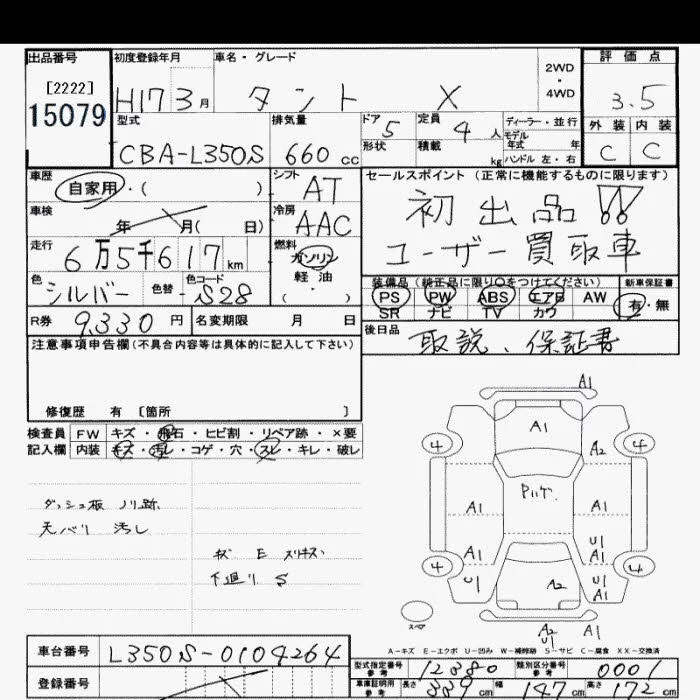 出品番号 初度登録年月 車名・グレード 2WD・4WD 評価点
[2222]
15079
H17 3月 タント X 3.5
型式 排気量 ドア 定員 ディーラー・並行 外装 内装
CBA-L350S 660cc 5 4人 モデル年式 年 C C
形状 積載 kg ハンドル 左・右
車歴 シフト セールスポイント(正常に機能するものに限ります)
自家用・( ) AT 初出品!!
車検 冷房 ユーザー買取車
年 月( 日) AAC
走行 燃料
6万5千617km ガソリン
軽・油
( )
色 色替 色コード 装備品(純正品に限り○をつけてください) 新車保証書
シルバー S28 PS PW ABS エアB AW 有・無
SR ナビ TV カワ
R券 9330円 名変期限 月 日 後日品
取説、保証書
注意事項申告欄(不具合内容等は具体的に記入して下さい)
修復歴 有 〔箇所 〕
検査員 FW キズ・飛石・ヒビ割・リペア跡・×要
記入欄 内装 キズ・汚レ・コゲ・穴・スレ・キレ・破レ
ダッシュ板 ノリ跡
天バリ 汚し
キズ E スリキズ
下廻り S
A1
A1
4 A2 4
A1 A1
A1 U1 A1
4 U1 A2 U1 A1 4
A1
スペア
A2 U1 A1
A-キズ E-エクボ U-凹み W-補修跡 S-サビ C-腐食 XX-交換済
車台番号 L350S-0104264
型式指定番号 参考 12380 類別区分番号 参考 0001
登録番号
車庫証明用 参考 長さ 339cm 幅 147cm 高さ 172cm